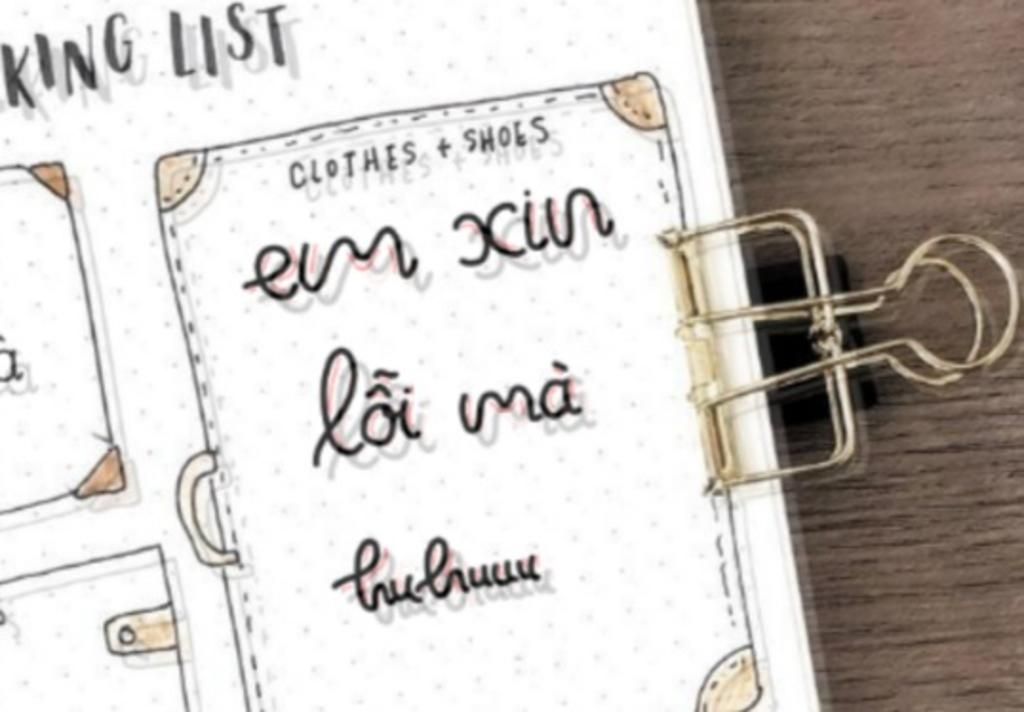 KING LIST
CLOTHES + SHOES
em xin
lỗi mà
huhuuu